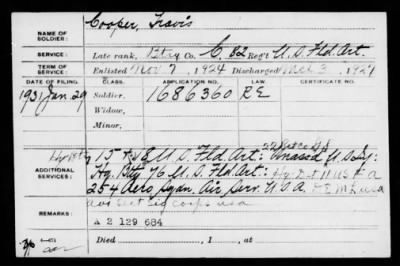 NAME OF SOLDIER: Cooper, Travis
SERVICE: Late rank, Btry Co. C, 82 Reg't U. S. Fld. Art.
TERM OF SERVICE: Enlisted Nov 7, 1924 Discharged 3, 1927
DATE OF FILING. CLASS. APPLICATION NO. CERTIFICATE NO.
1931 Jan. 29 Soldier, 1686360 RE
Widow,
Minor,
ADDITIONAL SERVICES: 15 + 18 U. S. Fld. Art: Unassd U. S.
Hq. Bty 76 U. S. Fld. Art:
254 Aero Sqdn. Air Serv. U. S. A.
usa
REMARKS:
A 2 129 684
Died , 1 , at